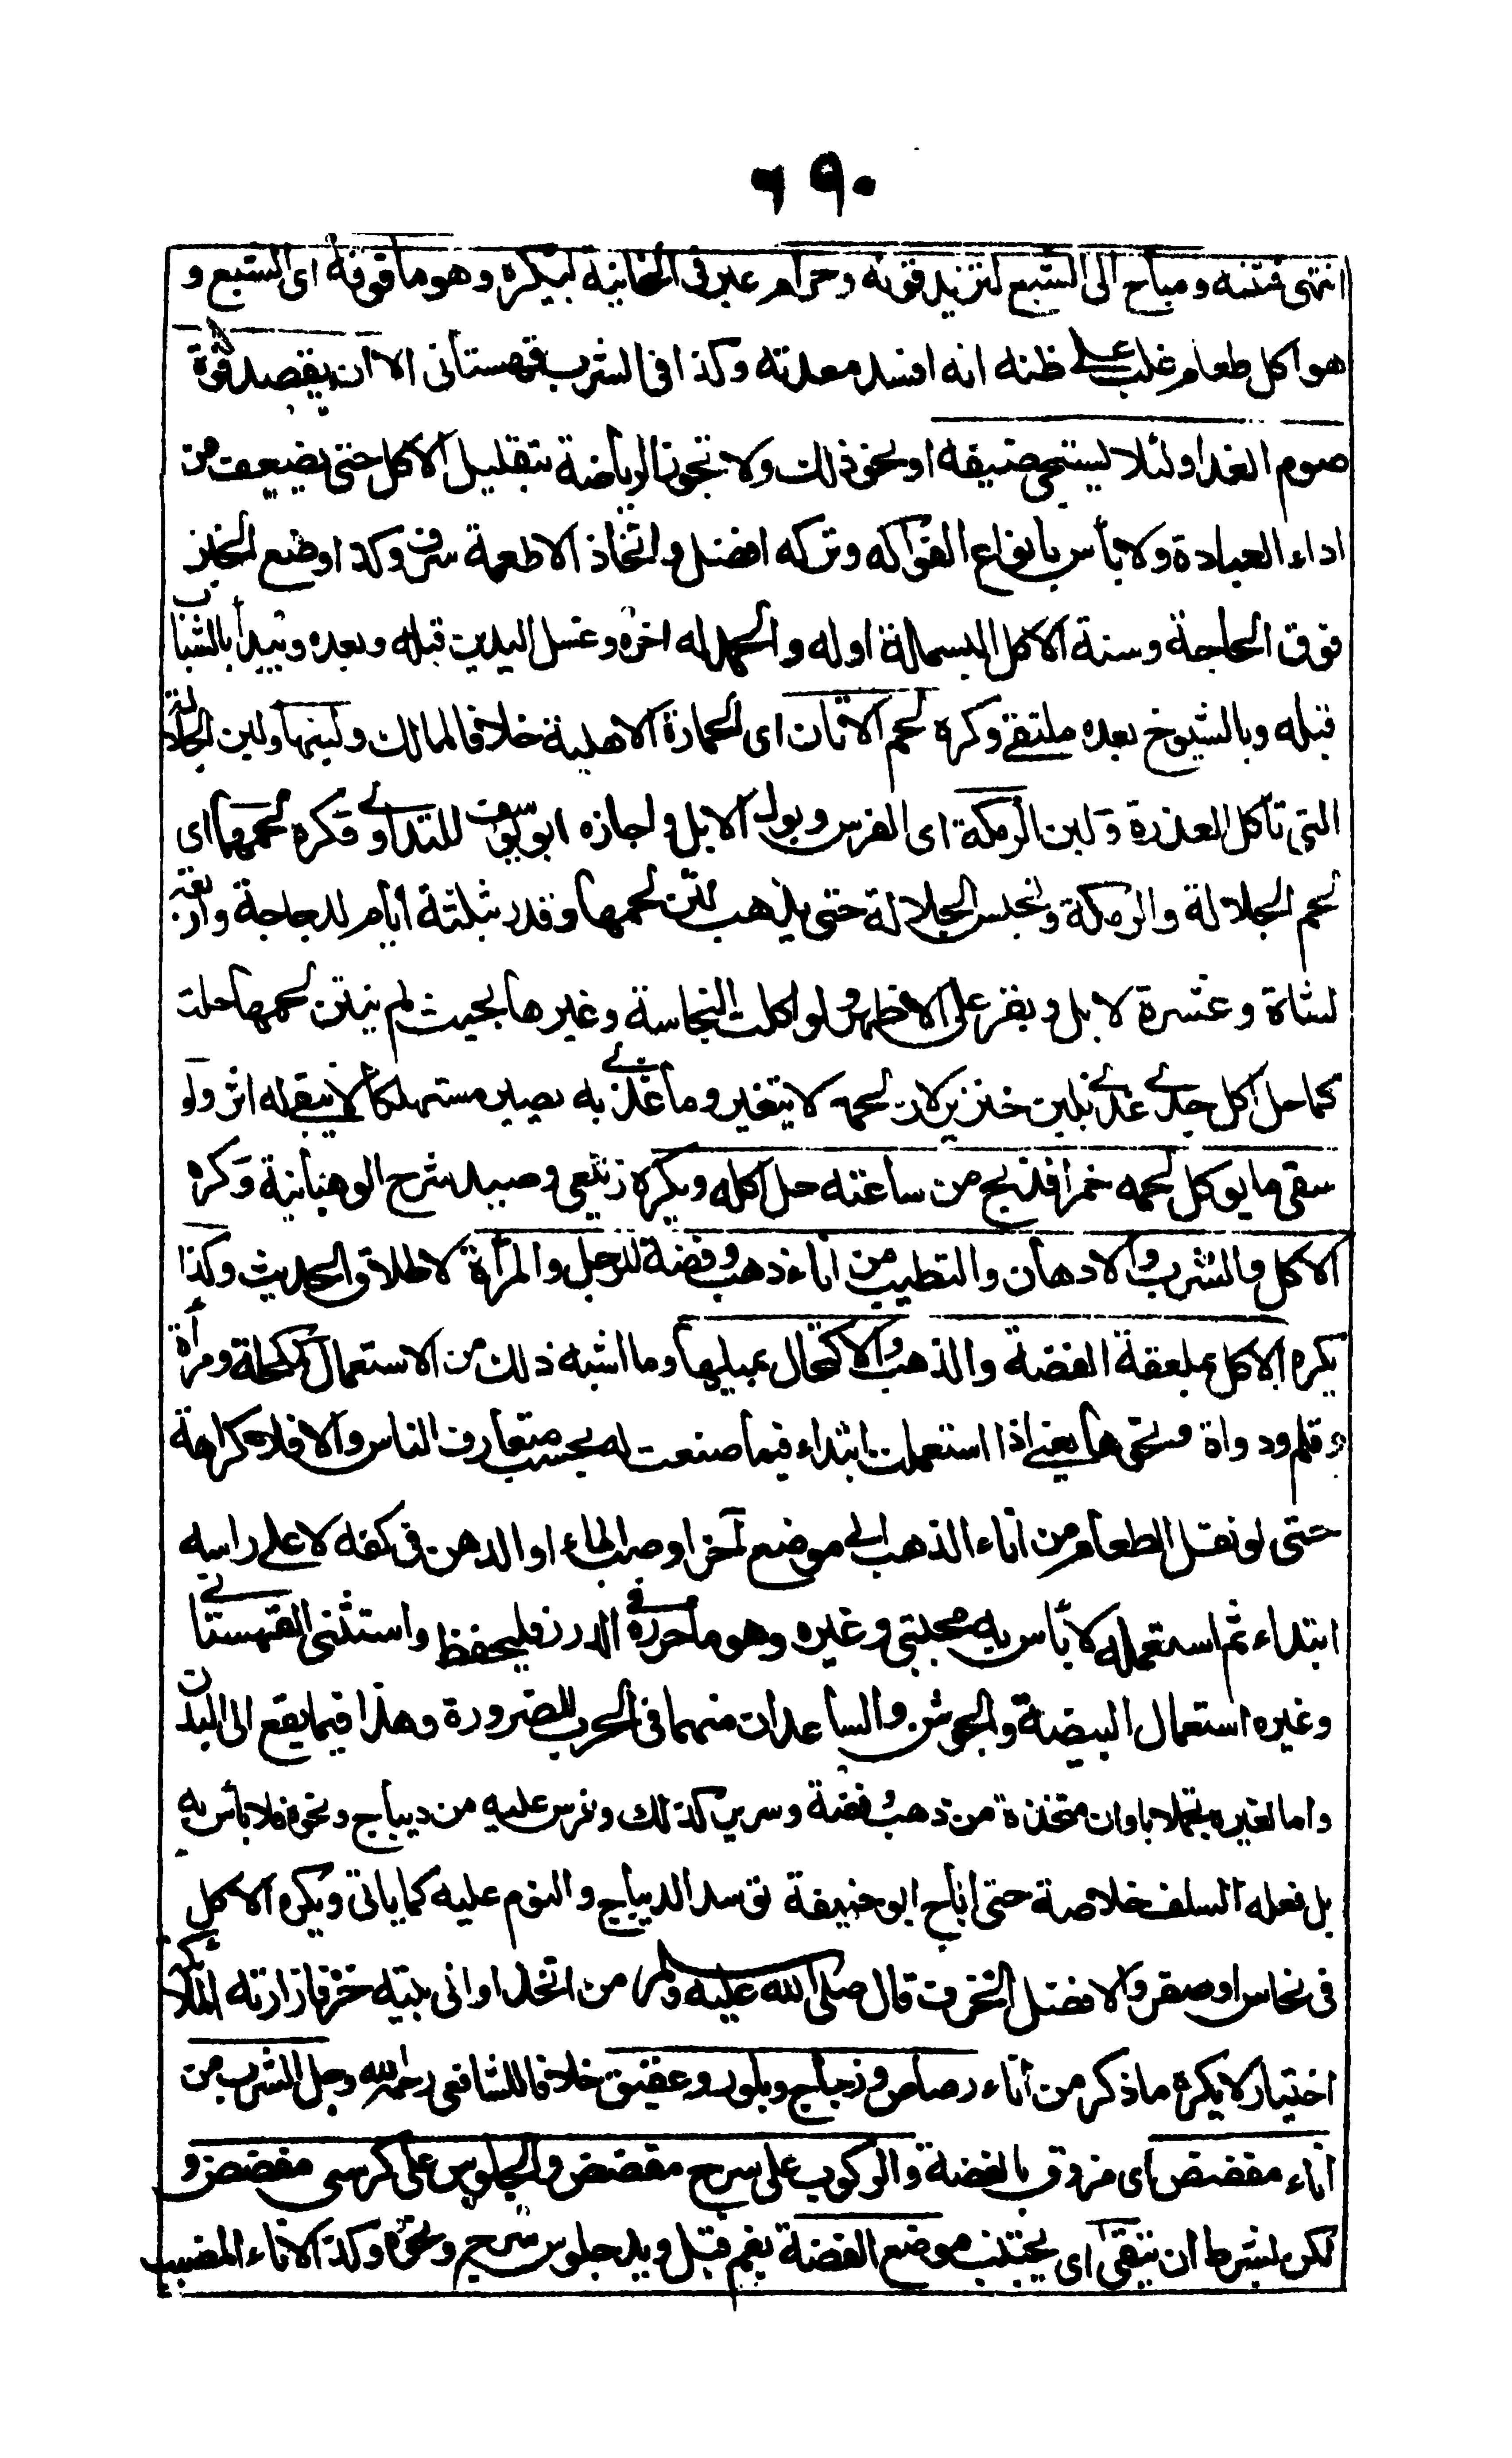 ٦٩٠
انتهى فتنبه ومباح الى الشبع لتزيد قوته وحرام عبر فى الخانية ليكره وهو ما فوقه اى الشبع و
هو اكل طعام غلب على ظنه انه افسد معدته وكذا فى الشرب قهستانى الا ان يقصد قوة
صوم الغد او لئلا يستحى ضيفه او نحو ذلك ولا تجوز الرياضة بتقليل الاكل حتى يضعف من
اداء العبادة ولا بأس بانواع الفواكه وتركه افضل واتخاذ الاطعمة سرف وكذا وضع الخبز
فوق الحاجة وسنة الاكل البسملة اوله والحمدله اخره وغسل اليدين قبله وبعده ويبدأ بالشباب
قبله وبالشيوخ بعده ملتقى وكره لحم الاتان اى الحمارة الاهلية خلافا لمالك ولبنها ولبن الجلالة
التى تأكل العذرة ولبن الرمكة اى الفرس وبول الابل واجازه ابو يوسف للتداوى وكره لحمهما اى
لحم الجلالة والرمكة وتحبس الجلالة حتى يذهب نتن لحمها وقدر بثلثة ايام لدجاجة واربعة
لشاة وعشرة لابل وبقر على الاظهر ولو اكلت النجاسة وغيرها بحيث لم ينتن لحمها حلت
كما حل اكل جدى غذى بلبن خنزير لان لحمه لا يتغير وما غذى به يصير مستهلكا لا يبقى له اثر ولو
سقى ما يوكل لحمه خمرا فذبح من ساعته حل اكله ويكره زيلعى وصيد شرح الوهبانية وكره
الاكل والشرب والادهان والتطيب من اناء ذهب وفضة للرجل والمرأة لاطلاق الحديث وكذا
يكره الاكل بملعقة الفضة والذهب والاكتحال بميلها وما اشبه ذلك من الاستعمال كمكحلة ومرأة
وقلم ودواة ونحوها يعنى اذا استعملت ابتداء فيما صنعت له بحسب متعارف الناس والا فلا كراهة
حتى لو نقل الطعام من اناء الذهب الى موضع آخر او صب الماء او الدهن فى كفه لا على راسه
ابتداء ثم استعمله لا بأس به مجتبى وغيره وهو ما حرره فى الدرر فليحفظ واستثنى القهستانى
وغيره استعمال البيضة والجوشن والساعدان منهما فى الحرب للضرورة وهذا فيما يقع الى البدن
واما لغيره تجملا باوان متخذة من ذهب وفضة وسرير كذلك وفرس عليه من ديباج ونحوه فلا بأس به
بل فعله السلف خلاصة حتى اباح ابو حنيفة توسد الديباج والنوم عليه كما ياتى ويكره الاكل
فى نحاس او صفر والافضل الخزف قال صلى الله عليه وسلم من اتخذ اوانى بيته خزفا زارته الملائكة
اختيار لا يكره ما ذكر من اناء رصاص وزجاج وبلور وعقيق خلافا للشافعى رحمه الله وحل الشرب من
اناء مفضض اى مزوق بالفضة والركوب على سرج مفضض والجلوس على كرسى مفضض و
لكن بشرط ان يتقى اى يجتنب موضع الفضة بفم قبل ويد جلوس سرج ونحوه وكذا الاناء المضبب